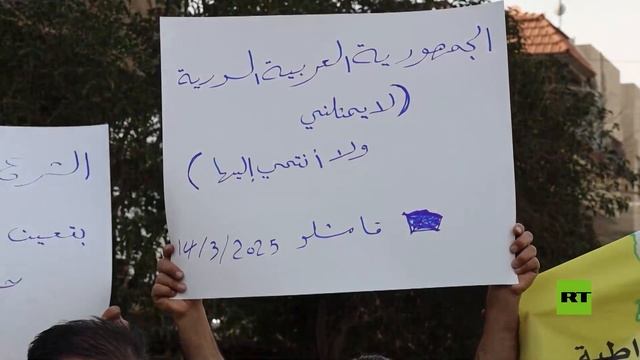 الجمهورية العربية السورية
(لا يمثلني
ولا أنتمي إليها)
قامشلو 14/3/2025
الشرع
بتعيين
RT
اطية